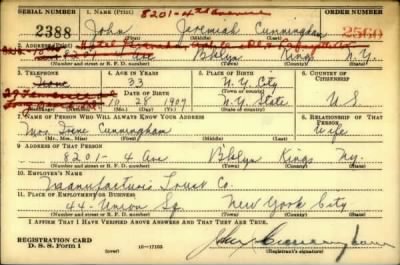 SERIAL NUMBER 1. NAME (Print) 8201-4th Avenue ORDER NUMBER
2388 John Jeremiah Cunningham 2560
(First) (Middle) (Last)
2. ADDRESS (Print)
8201 4 Ave Bklyn Kings N.Y.
(Number and street or R. F. D. number) (Town) (County) (State)
3. TELEPHONE 4. AGE IN YEARS 5. PLACE OF BIRTH 6. COUNTRY OF CITIZENSHIP
None 33 N.Y. City
DATE OF BIRTH (Town)
10 28 1907 N.Y. State U.S.
(Mo.) (Day) (Yr.) (State or country)
7. NAME OF PERSON WHO WILL ALWAYS KNOW YOUR ADDRESS 8. RELATIONSHIP OF THAT PERSON
Mrs. Irene Cunningham Wife
(Mr., Mrs., Miss) (First) (Middle) (Last)
9. ADDRESS OF THAT PERSON
8201-4 Ave Bklyn Kings Ny.
(Number and street or R. F. D. number) (Town) (County) (State)
10. EMPLOYER'S NAME
Manufacturers Trust Co.
11. PLACE OF EMPLOYMENT OR BUSINESS
44-Union Sq New York City.
(Number and street or R. F. D. number) (Town) (County) (State)
I AFFIRM THAT I HAVE VERIFIED ABOVE ANSWERS AND THAT THEY ARE TRUE.
REGISTRATION CARD
D. S. S. Form 1 16-17105 John J Cunningham
(Registrant's signature)